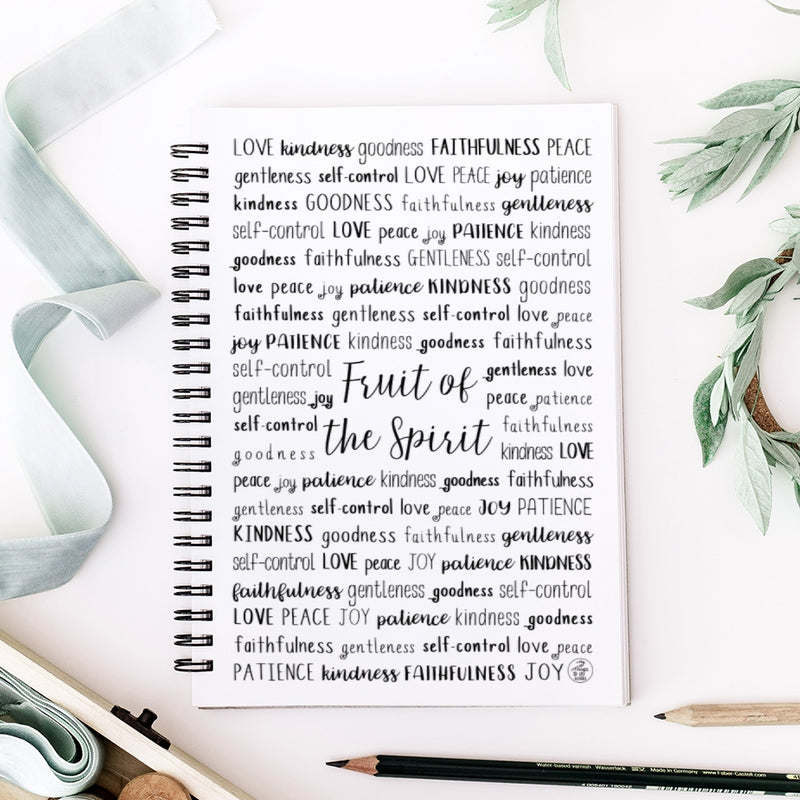 LOVE kindness goodness FAITHFULNESS PEACE
gentleness self-control LOVE PEACE joy patience
kindness GOODNESS faithfulness gentleness
self-control LOVE peace joy PATIENCE kindness
goodness faithfulness GENTLENESS self-control
love peace joy patience KINDNESS goodness
faithfulness gentleness self-control love peace
joy PATIENCE kindness goodness faithfulness
self-control gentleness love
gentleness joy peace patience
Fruit of
self-control faithfulness
the Spirit
goodness kindness LOVE
peace joy patience kindness goodness faithfulness
gentleness self-control love peace JOY PATIENCE
KINDNESS goodness faithfulness gentleness
self-control LOVE peace JOY patience KINDNESS
faithfulness gentleness goodness self-control
LOVE PEACE JOY patience kindness goodness
faithfulness gentleness self-control love peace
PATIENCE kindness FAITHFULNESS JOY
Water-based varnish Wasserlack Made in Germany www.Faber-Castell.com